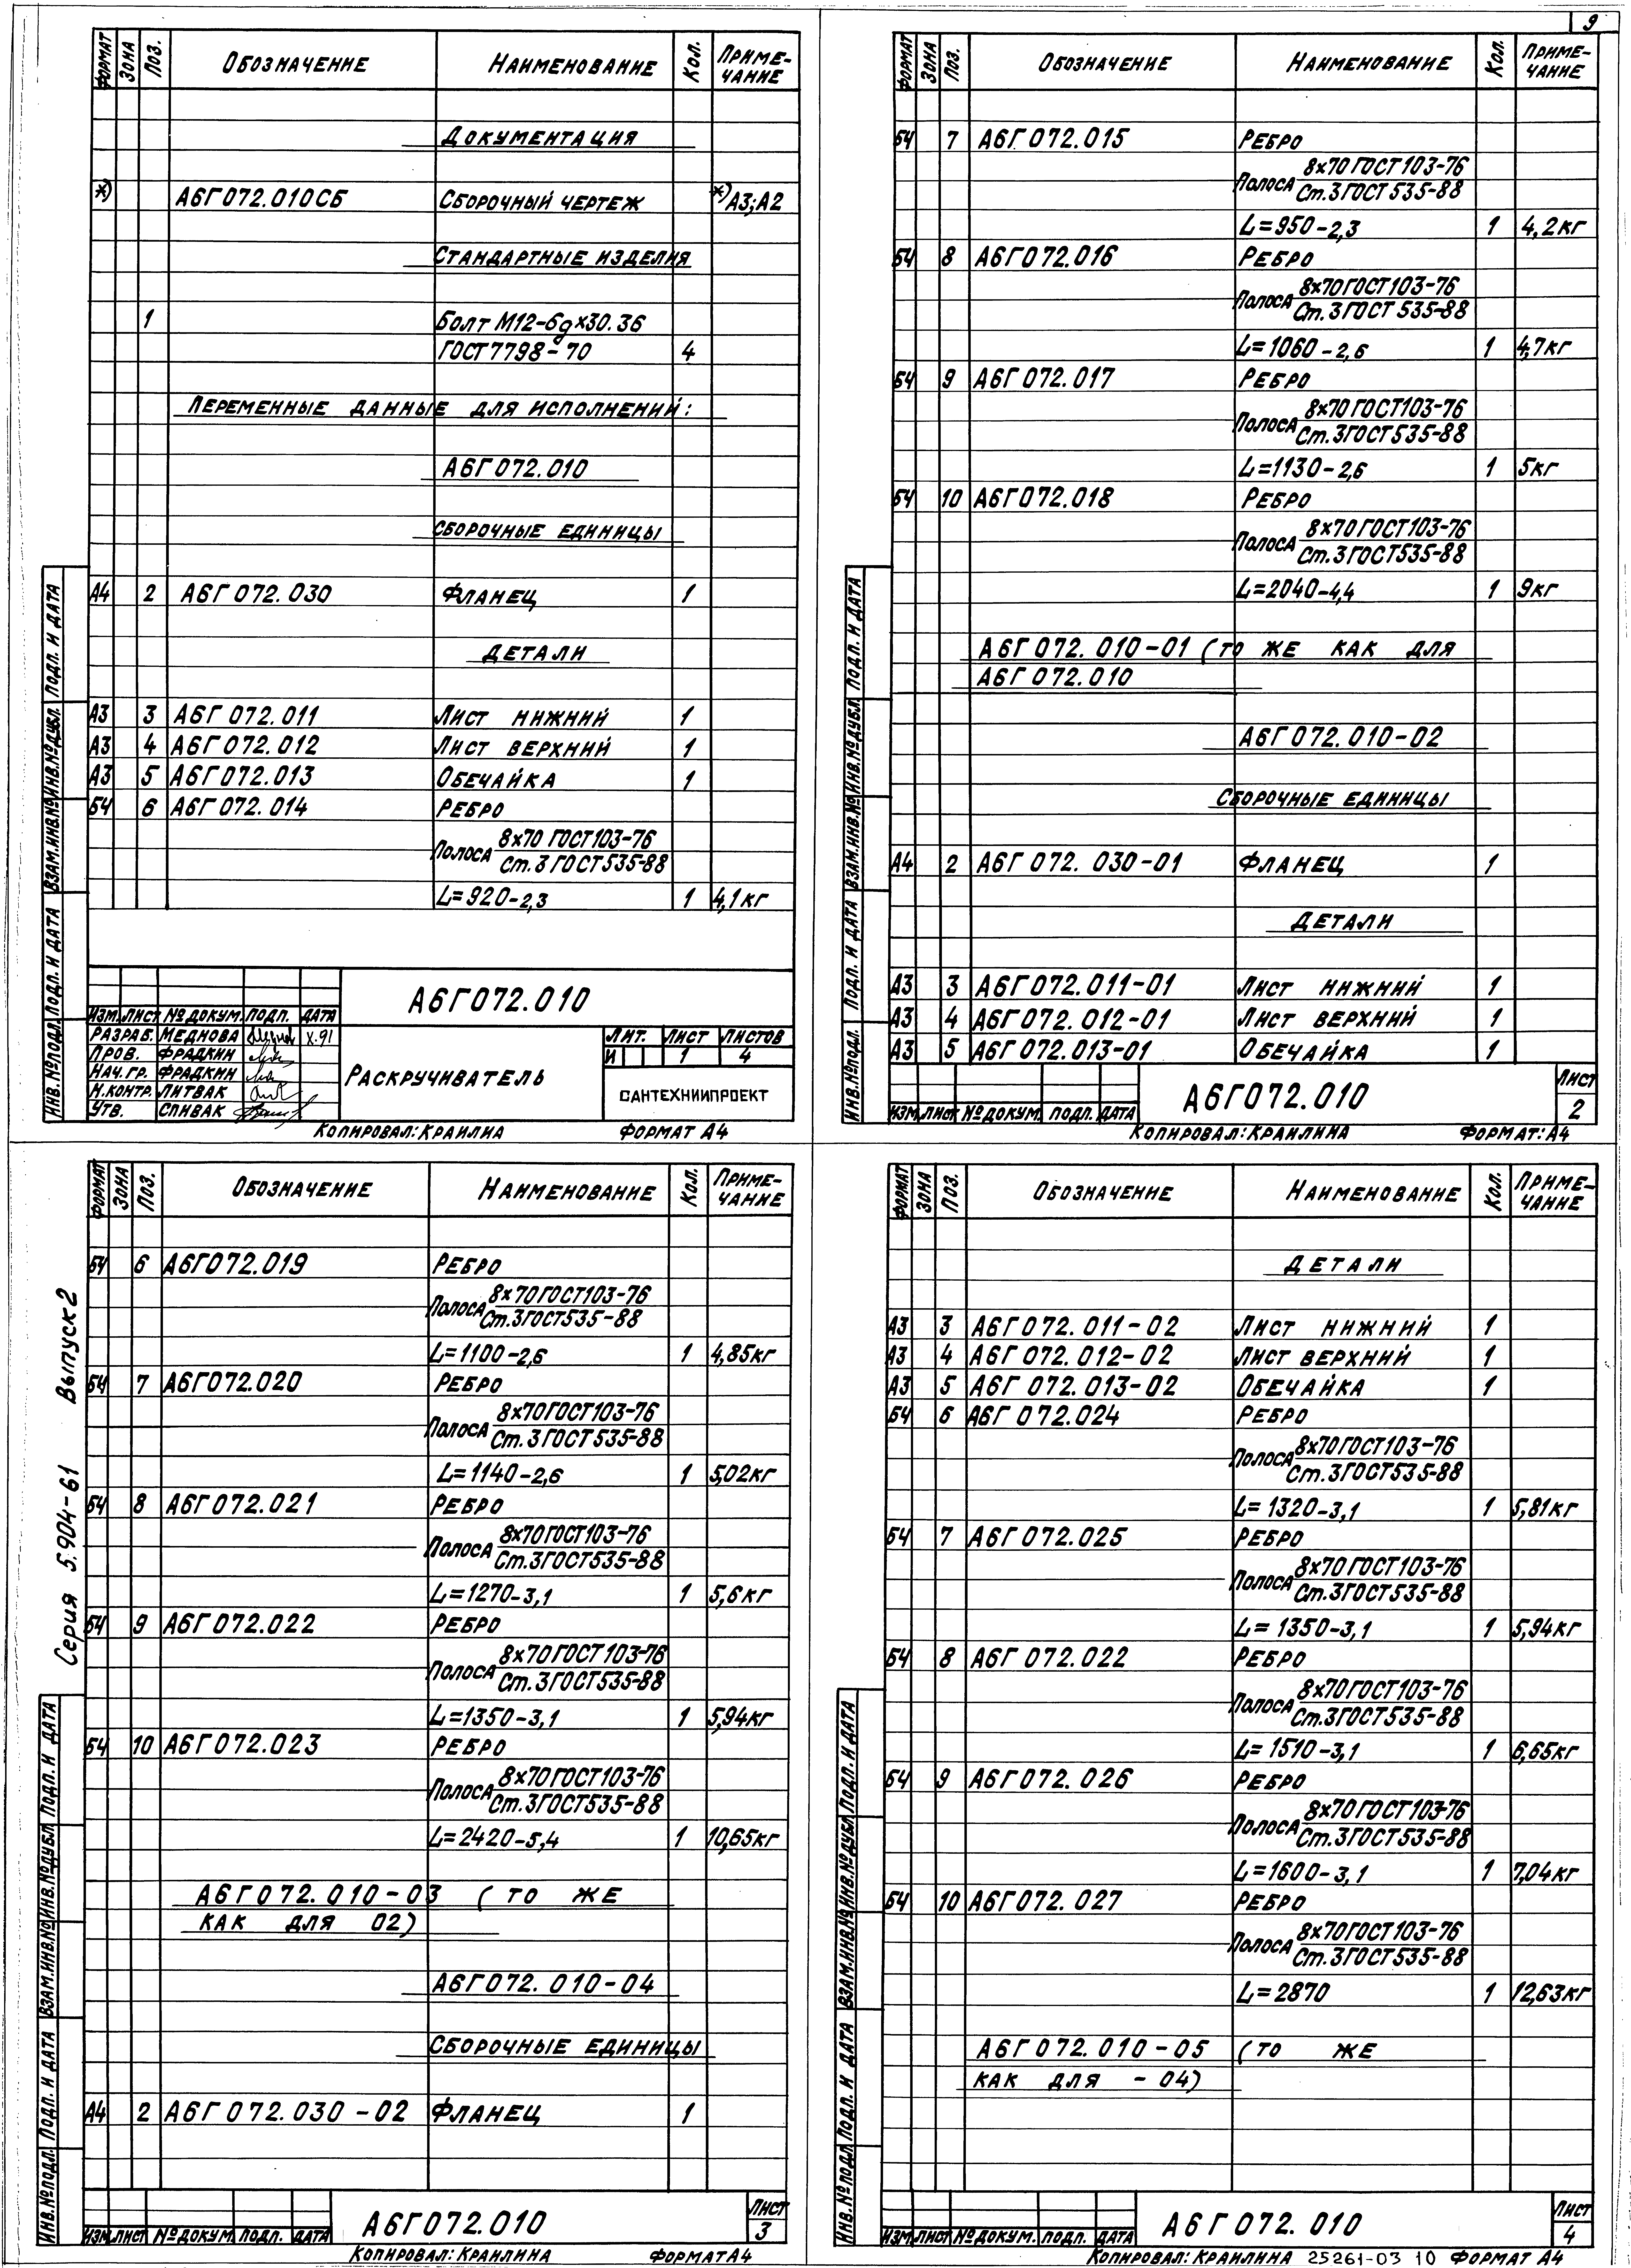 9
ФОРМАТ ЗОНА ПОЗ. ОБОЗНАЧЕНИЕ НАИМЕНОВАНИЕ КОЛ. ПРИМЕ-
ЧАНИЕ
ДОКУМЕНТАЦИЯ
*) А6Г072.010СБ СБОРОЧНЫЙ ЧЕРТЕЖ *)А3;А2
СТАНДАРТНЫЕ ИЗДЕЛИЯ
1 Болт М12-6gх30.36
ГОСТ7798-70 4
ПЕРЕМЕННЫЕ ДАННЫЕ ДЛЯ ИСПОЛНЕНИЙ:
А6Г072.010
СБОРОЧНЫЕ ЕДИНИЦЫ
А4 2 А6Г072.030 ФЛАНЕЦ 1
ДЕТАЛИ
А3 3 А6Г072.011 ЛИСТ НИЖНИЙ 1
А3 4 А6Г072.012 ЛИСТ ВЕРХНИЙ 1
А3 5 А6Г072.013 ОБЕЧАЙКА 1
БЧ 6 А6Г072.014 РЕБРО
Полоса 8х70 ГОСТ103-76
Ст.3 ГОСТ535-88
L=920-2,3 1 4,1кг
А6Г072.010
ИЗМ. ЛИСТ № ДОКУМ. ПОДП. ДАТА
РАЗРАБ. МЕДНОВА X.91
ПРОВ. ФРАДКИН
НАЧ.ГР. ФРАДКИН
Н.КОНТР. ЛИТВАК
УТВ. СПИВАК
РАСКРУЧИВАТЕЛЬ
ЛИТ. ЛИСТ ЛИСТОВ
И 1 4
САНТЕХНИИПРОЕКТ
ИНВ.№ПОДЛ. ПОДП. И ДАТА ВЗАМ.ИНВ.№ ИНВ.№ДУБЛ. ПОДП. И ДАТА
КОПИРОВАЛ: КРАИЛИА ФОРМАТ А4
ФОРМАТ ЗОНА ПОЗ. ОБОЗНАЧЕНИЕ НАИМЕНОВАНИЕ КОЛ. ПРИМЕ-
ЧАНИЕ
БЧ 7 А6Г072.015 РЕБРО
Полоса 8х70 ГОСТ103-76
Ст.3ГОСТ535-88
L=950-2,3 1 4,2кг
БЧ 8 А6Г072.016 РЕБРО
Полоса 8х70ГОСТ103-76
Ст.3ГОСТ535-88
L=1060-2,6 1 4,7кг
БЧ 9 А6Г072.017 РЕБРО
Полоса 8х70ГОСТ103-76
Ст.3ГОСТ535-88
L=1130-2,6 1 5кг
БЧ 10 А6Г072.018 РЕБРО
Полоса 8х70ГОСТ103-76
Ст.3ГОСТ535-88
L=2040-4,4 1 9кг
А6Г072.010-01 (ТО ЖЕ КАК ДЛЯ
А6Г072.010
А6Г072.010-02
СБОРОЧНЫЕ ЕДИНИЦЫ
А4 2 А6Г072.030-01 ФЛАНЕЦ 1
ДЕТАЛИ
А3 3 А6Г072.011-01 ЛИСТ НИЖНИЙ 1
А3 4 А6Г072.012-01 ЛИСТ ВЕРХНИЙ 1
А3 5 А6Г072.013-01 ОБЕЧАЙКА 1
ИЗМ. ЛИСТ № ДОКУМ. ПОДП. ДАТА
А6Г072.010
ЛИСТ
2
ИНВ.№ПОДЛ. ПОДП. И ДАТА ВЗАМ.ИНВ.№ ИНВ.№ДУБЛ. ПОДП. И ДАТА
КОПИРОВАЛ: КРАИЛИНА ФОРМАТ: А4
Серия 5.904-61 Выпуск 2
ФОРМАТ ЗОНА ПОЗ. ОБОЗНАЧЕНИЕ НАИМЕНОВАНИЕ КОЛ. ПРИМЕ-
ЧАНИЕ
БЧ 6 А6Г072.019 РЕБРО
Полоса 8х70ГОСТ103-76
Ст.3ГОСТ535-88
L=1100-2,6 1 4,85кг
БЧ 7 А6Г072.020 РЕБРО
Полоса 8х70ГОСТ103-76
Ст.3ГОСТ535-88
L=1140-2,6 1 5,02кг
БЧ 8 А6Г072.021 РЕБРО
Полоса 8х70ГОСТ103-76
Ст.3ГОСТ535-88
L=1270-3,1 1 5,6кг
БЧ 9 А6Г072.022 РЕБРО
Полоса 8х70ГОСТ103-76
Ст.3ГОСТ535-88
L=1350-3,1 1 5,94кг
БЧ 10 А6Г072.023 РЕБРО
Полоса 8х70ГОСТ103-76
Ст.3ГОСТ535-88
L=2420-5,4 1 10,65кг
А6Г072.010-03 (ТО ЖЕ
КАК ДЛЯ 02)
А6Г072.010-04
СБОРОЧНЫЕ ЕДИНИЦЫ
А4 2 А6Г072.030-02 ФЛАНЕЦ 1
ИЗМ. ЛИСТ № ДОКУМ. ПОДП. ДАТА
А6Г072.010
ЛИСТ
3
ИНВ.№ПОДЛ. ПОДП. И ДАТА ВЗАМ.ИНВ.№ ИНВ.№ДУБЛ ПОДП. И ДАТА
КОПИРОВАЛ: КРАИЛИНА ФОРМАТ А4
ФОРМАТ ЗОНА ПОЗ. ОБОЗНАЧЕНИЕ НАИМЕНОВАНИЕ КОЛ. ПРИМЕ-
ЧАНИЕ
ДЕТАЛИ
А3 3 А6Г072.011-02 ЛИСТ НИЖНИЙ 1
А3 4 А6Г072.012-02 ЛИСТ ВЕРХНИЙ 1
А3 5 А6Г072.013-02 ОБЕЧАЙКА 1
БЧ 6 А6Г072.024 РЕБРО
Полоса 8х70ГОСТ103-76
Ст.3ГОСТ535-88
L=1320-3,1 1 5,81кг
БЧ 7 А6Г072.025 РЕБРО
Полоса 8х70ГОСТ103-76
Ст.3ГОСТ535-88
L=1350-3,1 1 5,94кг
БЧ 8 А6Г072.022 РЕБРО
Полоса 8х70ГОСТ103-76
Ст.3ГОСТ535-88
L=1510-3,1 1 6,65кг
БЧ 9 А6Г072.026 РЕБРО
Полоса 8х70ГОСТ103-76
Ст.3ГОСТ535-88
L=1600-3,1 1 7,04кг
БЧ 10 А6Г072.027 РЕБРО
Полоса 8х70ГОСТ103-76
Ст.3ГОСТ535-88
L=2870 1 12,63кг
А6Г072.010-05 (ТО ЖЕ
КАК ДЛЯ -04)
ИЗМ. ЛИСТ № ДОКУМ. ПОДП. ДАТА
А6Г072.010
ЛИСТ
4
ИНВ.№ПОДЛ ПОДП. И ДАТА ВЗАМ.ИНВ.№ ИНВ.№ДУБЛ ПОДП. И ДАТА
КОПИРОВАЛ: КРАИЛИНА 25261-03 10 ФОРМАТ А4